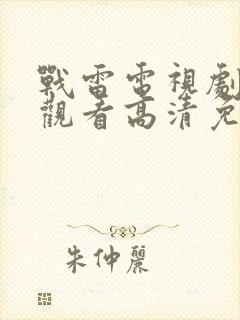 戰雷電視劇
觀看高清免
朱仲麗